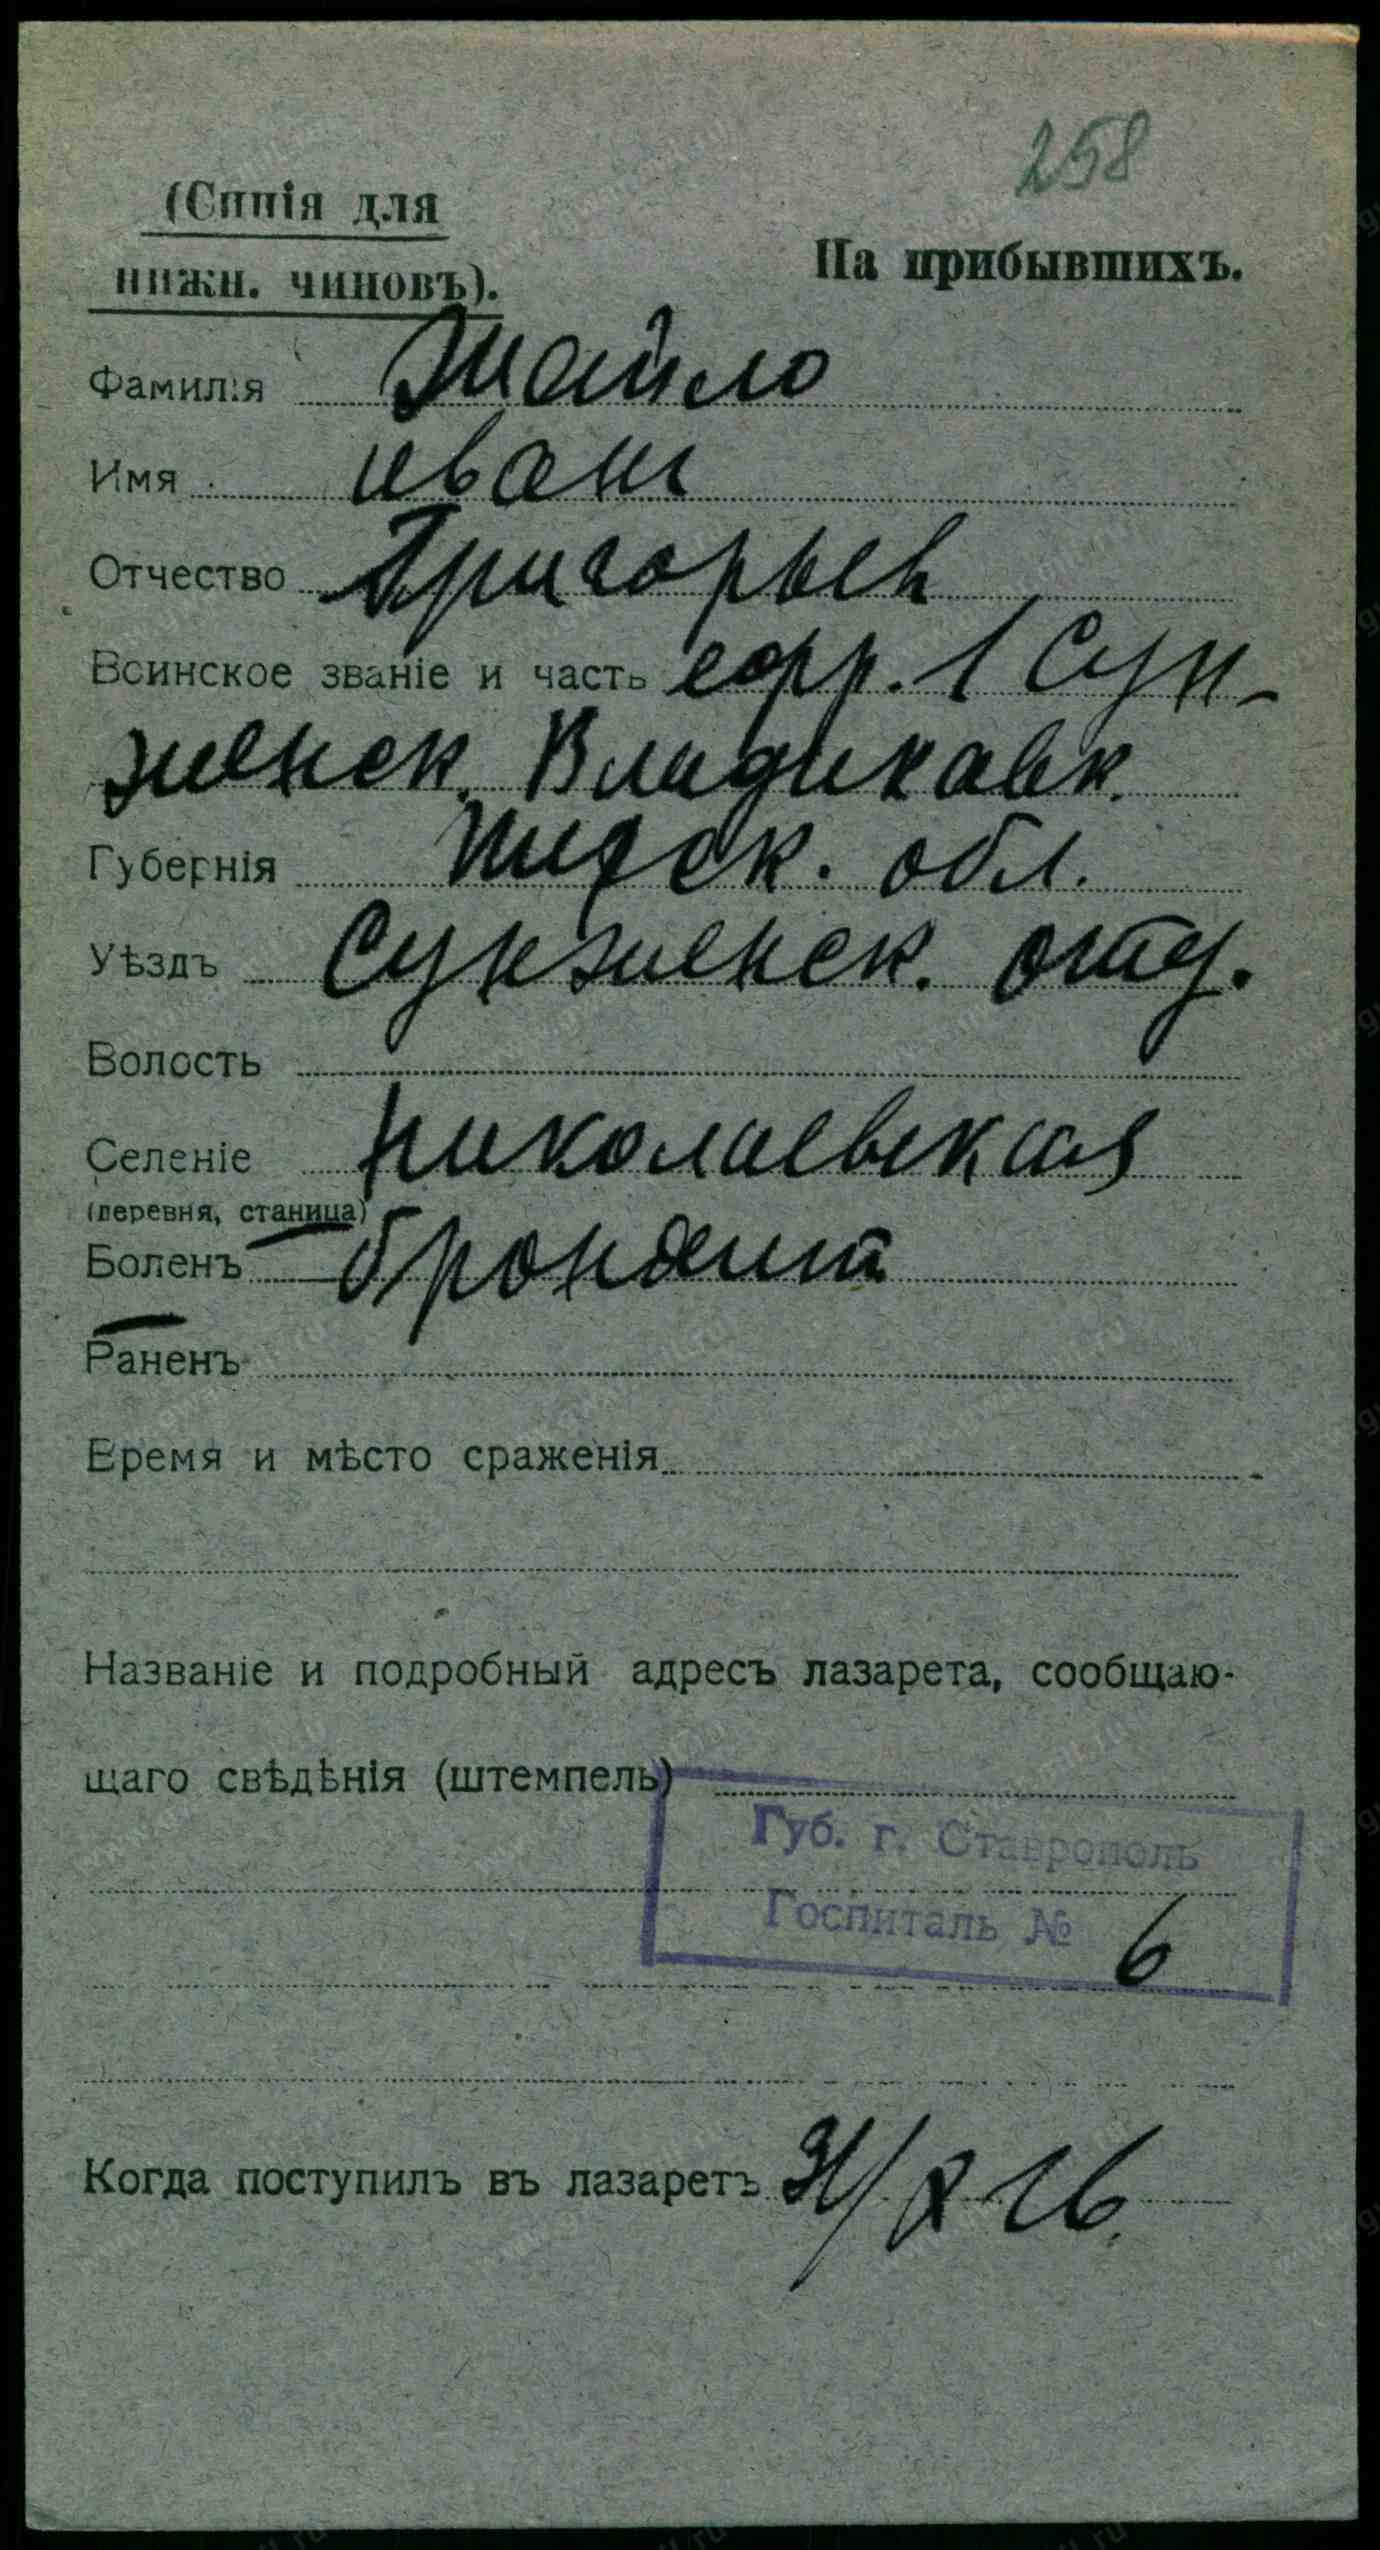 258
(Синія для
нижн. чиновъ).
На прибывшихъ.
Фамилія Жайло
Имя Иванъ
Отчество Григорьев
Воинское званіе и часть ефр. 1 Сун-
женск. Владикавк.
Губернія Терск. обл.
Уѣздъ Сунженск. отд.
Волость
Селеніе Николаевская
(деревня, станица)
Боленъ бронхит
Раненъ
Время и мѣсто сраженія
Названіе и подробный адресъ лазарета, сообщаю-
щаго свѣдѣнія (штемпель)
Губ. г. Ставрополь
Госпиталь № 6
Когда поступилъ въ лазаретъ 31/X 16.